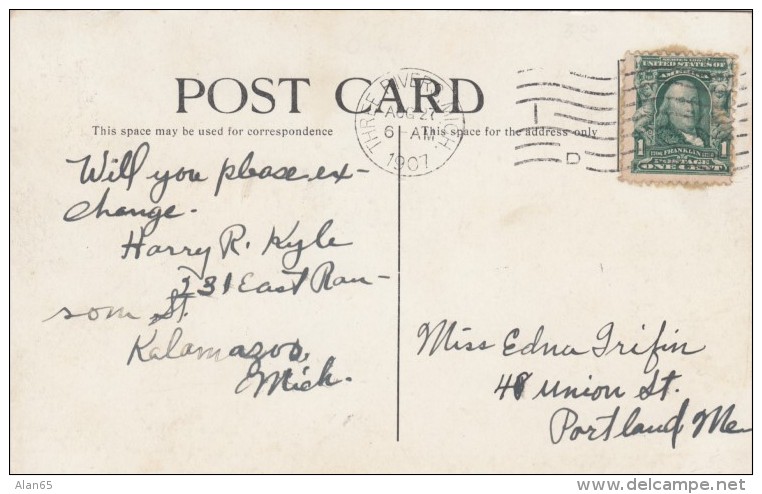 POST CARD
This space may be used for correspondence
This space for the address only
THREE RIVERS, MICH.
AUG 27
6-AM
1907
D
SERIES 1902
UNITED STATES OF
AMERICA
1
FRANKLIN
POSTAGE
ONE CENT
Will you please ex-
change.
Harry R. Kyle
231 East Ran-
som St.
Kalamazoo,
Mich.
Miss Edna Grifin
48 Union St.
Portland Me
Alan65
delcampe.net